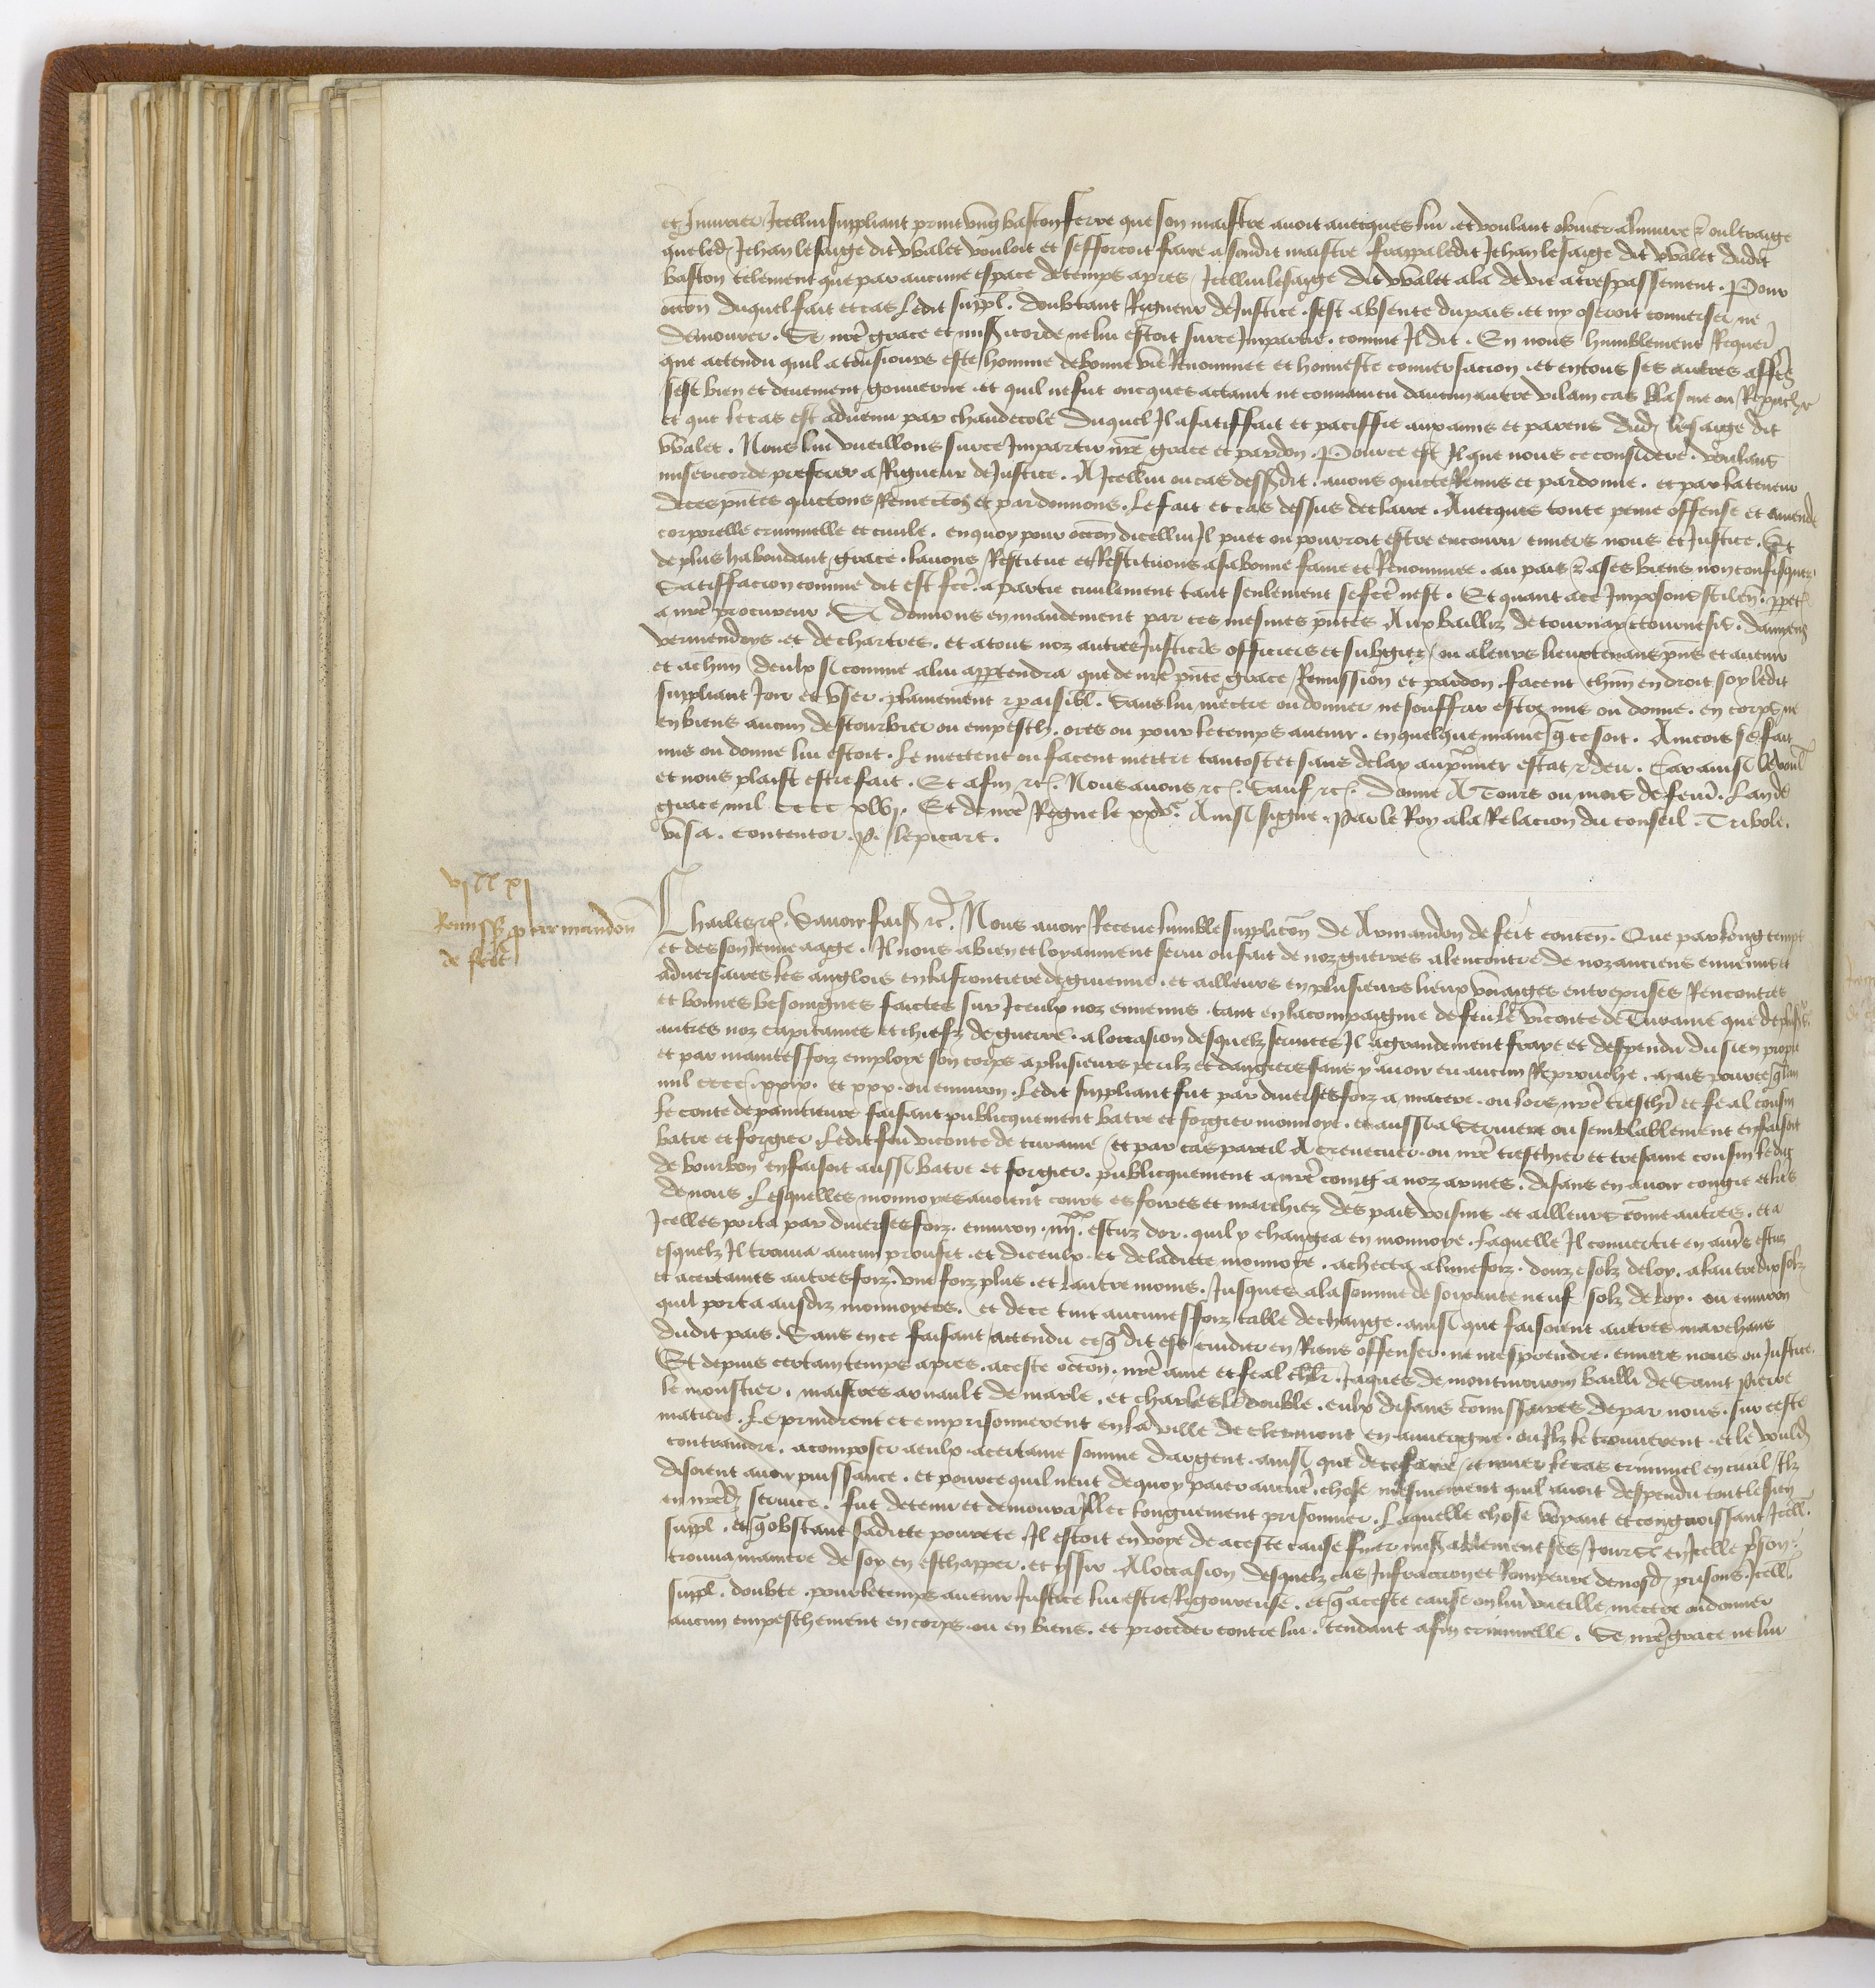 et Iniurier Icellui suppliant print vng baston ferre que son maistre auoit auecques lui et voulant obuier a liniure & oultraige
que led Jehan lesaige dit vvalet vouloit et sefforcoit faire a sondit maistre frappa ledit Jehan lesaige dit vvalet dudit
baston telement que par aucune espace de temps apres Icellui lesaige dit vvalet ala de vie a trespassement . Pour
occon duquel fait et cas ledit suppl . doubtant Rigueur de Justice . sest absente du pais . et ny oseroit conuerser ne
demourer . Se nre grace et misicorde ne lui estoit surce Impartie . comme Il dit . En nous humblement Requer
que actendu quil a tousiours este homme de bonne vie Renommee et honneste conuersacion . et en tous ses autres affes
sest bien et deuement gouuerne . et quil ne fut oncques actaint ne conuaincu daucun autre vilain cas blasme ou Repuche
et que le cas est aduenu par chaudecole duquel Il a satisffait et paciffie aux amis et parens dud lesaige dit
vvalet . Nous lui vueillons surce Impartir nre grace et pardon . Pource est Il que nous ce considere . voulans
misericorde preferer a Rigueur de Justice . A Icellui ou cas dessusdit . auons quicte Remis et pardonne . et par la teneur
de ces pntes quictons Remectons et pardonnons . Le fait et cas dessus declaire . Auecques toute peine offense et amende
corporelle criminelle et ciuile . en quoy pour occon dicellui Il puet ou pourroit estre encouru enuers nous et Justice . Et
de plus habondant grace . lauons Restitue et Restituons a sa bonne fame et Renommee . au pais & a ses biens non confisquez
Satisffacion comme dit est fce . a partie ciuilement tant seulement se fce nest . Et quant a ce Imposons silen . ppet
a nre procureur . Si donnons en mandement par ces mesmes pntes Aux bailliz de tournay tournesis . damiens
vermendois . et de chartres . et a tous noz autres Justiciers officiers et subgiez ou a leurs lieuxtenans pns et auenir
et a chun deulx si comme a lui appartendra que de nre pnte grace Remission et pardon . facent chun endroit soy ledit
suppliant Joir et vser . plainement & paisibl . Sans lui mectre ou donner ne souffrir estre mis ou donne . en corps ne
en biens aucun destourbier ou empesch . ores ou pour le temps auenir . en quelque manie q ce soit . Aincois se fait
mis ou donne lui estoit . Le mectent ou facent mectre tantost et sans delay au primier estat & deu . Car ainsi le voul
et nous plaist estre fait . Et afin &c . Nous auons &c . Sauf &c . Donne A Tours ou mois de feur . Lan de
grace mil . cccc xlvj . Et de nre Regne le xxve . Ainsi signe . Par le Roy a la Relacion du conseil . Tribole .
visa . contentor . P . lepicart .
vjcc xj
Remiss p armandon
de feit
Charles &c . Sauoir fais &c . Nous auoir Receue lumble supplicon de Armandon de feit conten . Que par long temps
et des son Jenne aage . Il nous a bien et loyaument serui ou fait de noz guerres alencontre de noz anciens ennemis et
aduersaires les anglois en la frontiere de guienne . et ailleurs en plusieurs lieux voiaiges entreprises Rencontres
et bonnes besoingnes faictes sur Iceulx noz ennemis . tant en la compaignie de feu le viconte de Turaine que de plus
autres noz cappitaines et chiefz de guerre . a loccasion desquelz seruices Il a grandement fraye et despendu du sien propre
et par maintesfoiz employe son corps a plusieurs perilz et dangiers sans y auoir eu aucun Reprouche . mais pource q lan
mil cccc xxix . et xxx . ou enuiron . Ledit suppliant fut par diuersesfoiz a . ou lors nre treschr et feal cousin
le conte de pantieure faisant publicquement batre et forgier monnoye . et aussi a ou semblablement en faisoit
batre et forgier . Ledit feu viconte de turaine et par cas pareil A creuecuer . ou nre treschier et tresame cousin le duc
de bourbon en faisoit aussi batre et forgier . publicquement a nre coing a noz armes . disans en auoir congie et lics
de nous . Lesquelles monnoyes auoient cours es foires et marchiez des pais voisins . et ailleurs come autres . et a
Icelles porta par diuersesfoiz . enuiron . iiijxx . escuz dor . quil y changea en monnoye . Laquelle Il conuertit en autres escuz
esquelz Il trouua aucun proufit . et diceulx . et de ladicte monnoye . achecta alunefoiz . douze solz de loy . a lautre dix solz
et a certaines autresfoiz . vne foiz plus . et lautre moins . Jusques a la somme de soixanteneuf solz de loy . ou enuiron
quil porta ausdiz monnoyers . et de ce tint aucunesfoiz table de change . ainsi que faisoient autres marchans
dudit pais . Sans en ce faisant actendu ce q dit est cuider en Riens offenser . ne mesprendre . enuers nous ou Justice .
Et depuis certain temps apres . a ceste occon . nre ame et feal chlr . Jaques de montmorin bailli de Saint pierre
le monstier . maistres arnault de marle . et charles le double . eulx disans comissaires de par nous . sur ceste
matiere . Le prindrent et emprisonnerent en la ville de clermont en auuergne . ou Ilz le trouuerent . et le vouldr
contraindre . a composer a eulx a certaine somme dargent . ainsi que de ce faire et muer le cas criminel en ciuil Ilz
disoient auoir puissance . et pource quil neut de quoy paier aucune chose mesmement quil auoit despendu tout le sien
en nred seruice . fut detenu et demoura Illec longuement prisonnier . Laquelle chose voyant et congnoissant Icell
suppl . et q obstant sadicte pourete . Il estoit en voye de a ceste cause finer miserablement ses Jours en Icelle prison .
trouua maniere de soy en eschapper . et yssir . A loccasion desquelz cas Infraccion et Rompture de nosd prisons . Icell
suppl . doubte . pour le temps auenir Justice lui estre Rigoureuse . et q a ceste cause on lui vueille mectre ou donner
aucun empeschement en corps . ou en biens . et proceder contre lui . tendant afin criminelle . Se nre grace ne lui